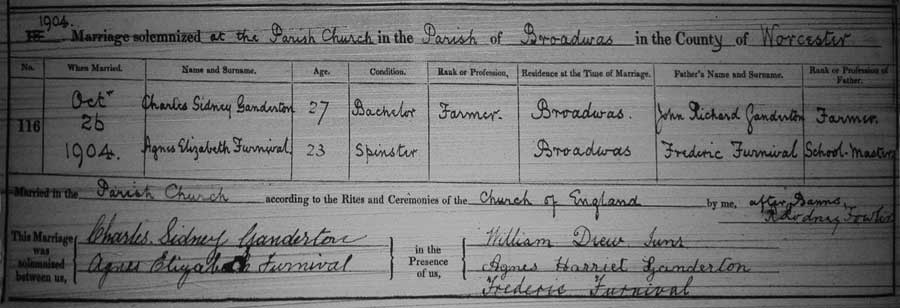 1904.
18 Marriage solemnized at the Parish Church in the Parish of Broadwas in the County of Worcester
No. When Married. Name and Surname. Age. Condition. Rank or Profession. Residence at the Time of Marriage. Father's Name and Surname. Rank or Profession of Father.
116 Octr 26 1904. Charles Sidney Ganderton 27 Bachelor Farmer. Broadwas. John Richard Ganderton Farmer.
Agnes Elizabeth Furnival 23 Spinster Broadwas Frederic Furnival School-Master
Married in the Parish Church according to the Rites and Ceremonies of the Church of England by me, after Banns,
Rodney Fowler
This Marriage was solemnized between us, Charles Sidney Ganderton in the Presence of us, William Drew Junr
Agnes Elizabeth Furnival Agnes Harriet Ganderton
Frederic Furnival